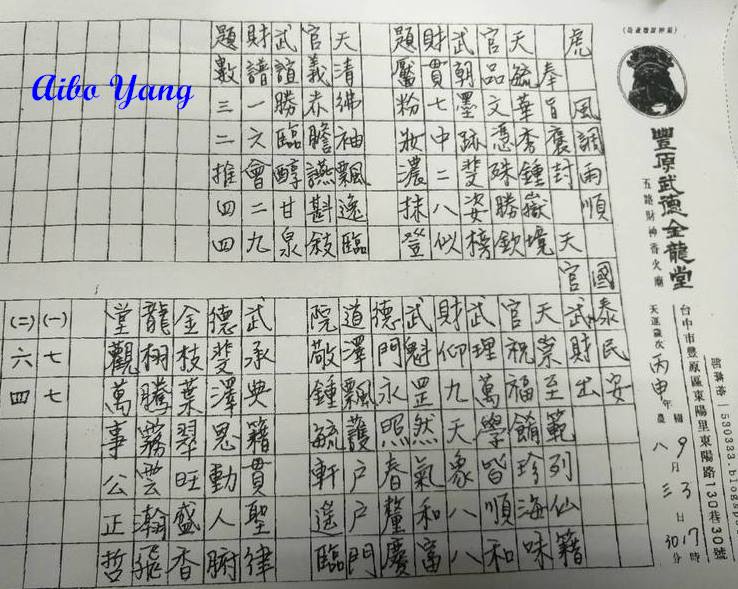 (局鹿港押神虎)
豐原武德金龍堂
五路財神香火廟
台中市豐原區東陽里東陽路130巷30號
1530333.blogsp
天運歲次丙申年 國曆9月 農八月三日17時30分
虎 風調雨順 國泰民安
奉旨褒封 天官武財出
天毓華秀鍾嶽境
官品文憑殊勝欽
武朝墨跡斐姿榜
財貫七中二八似
題靨粉妝濃抹登
天清彿袖飄逸臨
官義赤膽讌斟敍
武誼勝臨醇甘泉
財譜一六會二九
題數三二推四四
天崇至範列仙籍
官祝福餚珍海味
武理萬學皆順和
財仰九天象八八
武魁罡然氣和富
德門永照春釐慶
道澤飄護戶戶門
院敬鍾毓軒遙臨
武承典籍貫聖律
德斐澤恩動人腑
金枝葉翠旺盛香
龍栩騰霧雲瀚飛
堂觀萬事公正哲
(一)七七
(二)六四
Aibo Yang